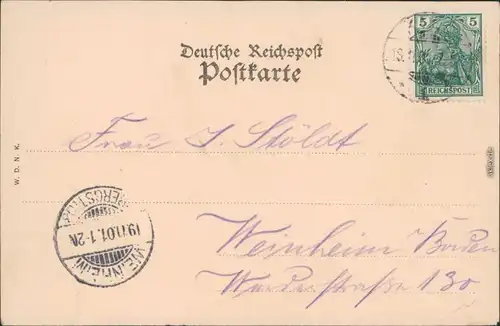 5 5
REICHSPOST
Deutsche Reichspost
Postkarte
Frau J. Stöldt
W. D. N. K.
WEINHEIM
19.11.01. 1-2N.
Weinheim Baden
130